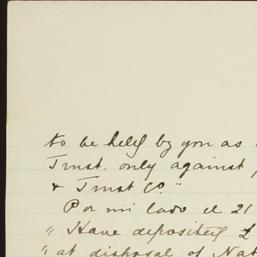 to be held by you as
Trust. only against
& Trust Co."
Por mi lado el 21
" Have deposited £
" at disposal of Nat